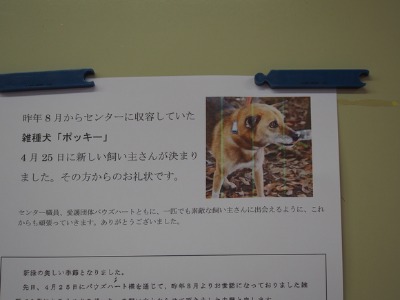 昨年8月からセンターに収容していた
雑種犬「ポッキー」
4月25日に新しい飼い主さんが決まり
ました。その方からのお礼状です。
センター職員、愛護団体パウズハートともに、一匹でも素敵な飼い主さんに出会えるように、これ
からも頑張っていきます。ありがとうございました。
新緑の美しい季節となりました。
先日、4月25日にパウズハート様を通じて、昨年8月よりお世話になっておりました雑